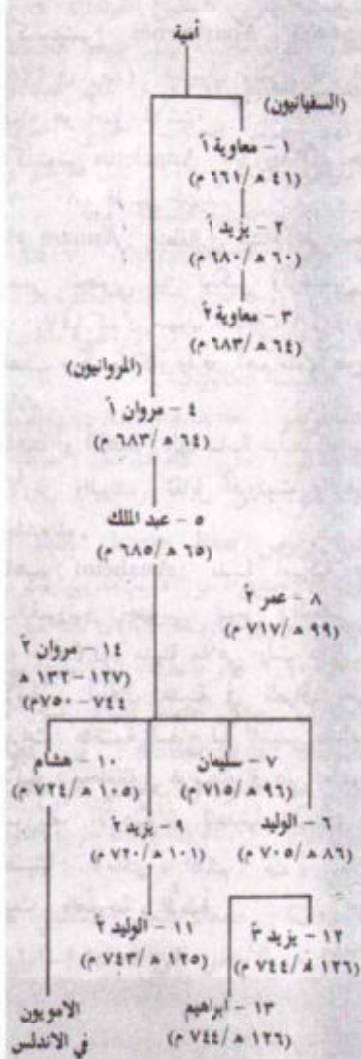 أمية
(السفيانيون)
١ - معاوية ١ً
(٤١ ه/٦٦١ م)
٢ - يزيد ١ً
(٦٠ ه/٦٨٠ م)
٣ - معاوية ٢ً
(٦٤ ه/٦٨٣ م)
(المروانيون)
٤ - مروان ١ً
(٦٤ ه/٦٨٣ م)
٥ - عبد الملك
(٦٥ ه/٦٨٥ م)
٨ - عمر ٢ً
(٩٩ ه/٧١٧ م)
١٤ - مروان ٢ً
(١٢٧-١٣٢ ه
٧٤٤-٧٥٠م)
٧ - سليمان
(٩٦ ه/٧١٥ م)
١٠ - هشام
(١٠٥ ه/٧٢٤ م)
٦ - الوليد
(٨٦ ه/٧٠٥ م)
٩ - يزيد ٢ً
(١٠١ ه/٧٢٠ م)
١١ - الوليد ٢ً
(١٢٥ ه/٧٤٣ م)
١٢ - يزيد ٣ً
(١٢٦ ه/٧٤٤ م)
١٣ - ابراهيم
(١٢٦ ه/٧٤٤ م)
الامويون
في الاندلس